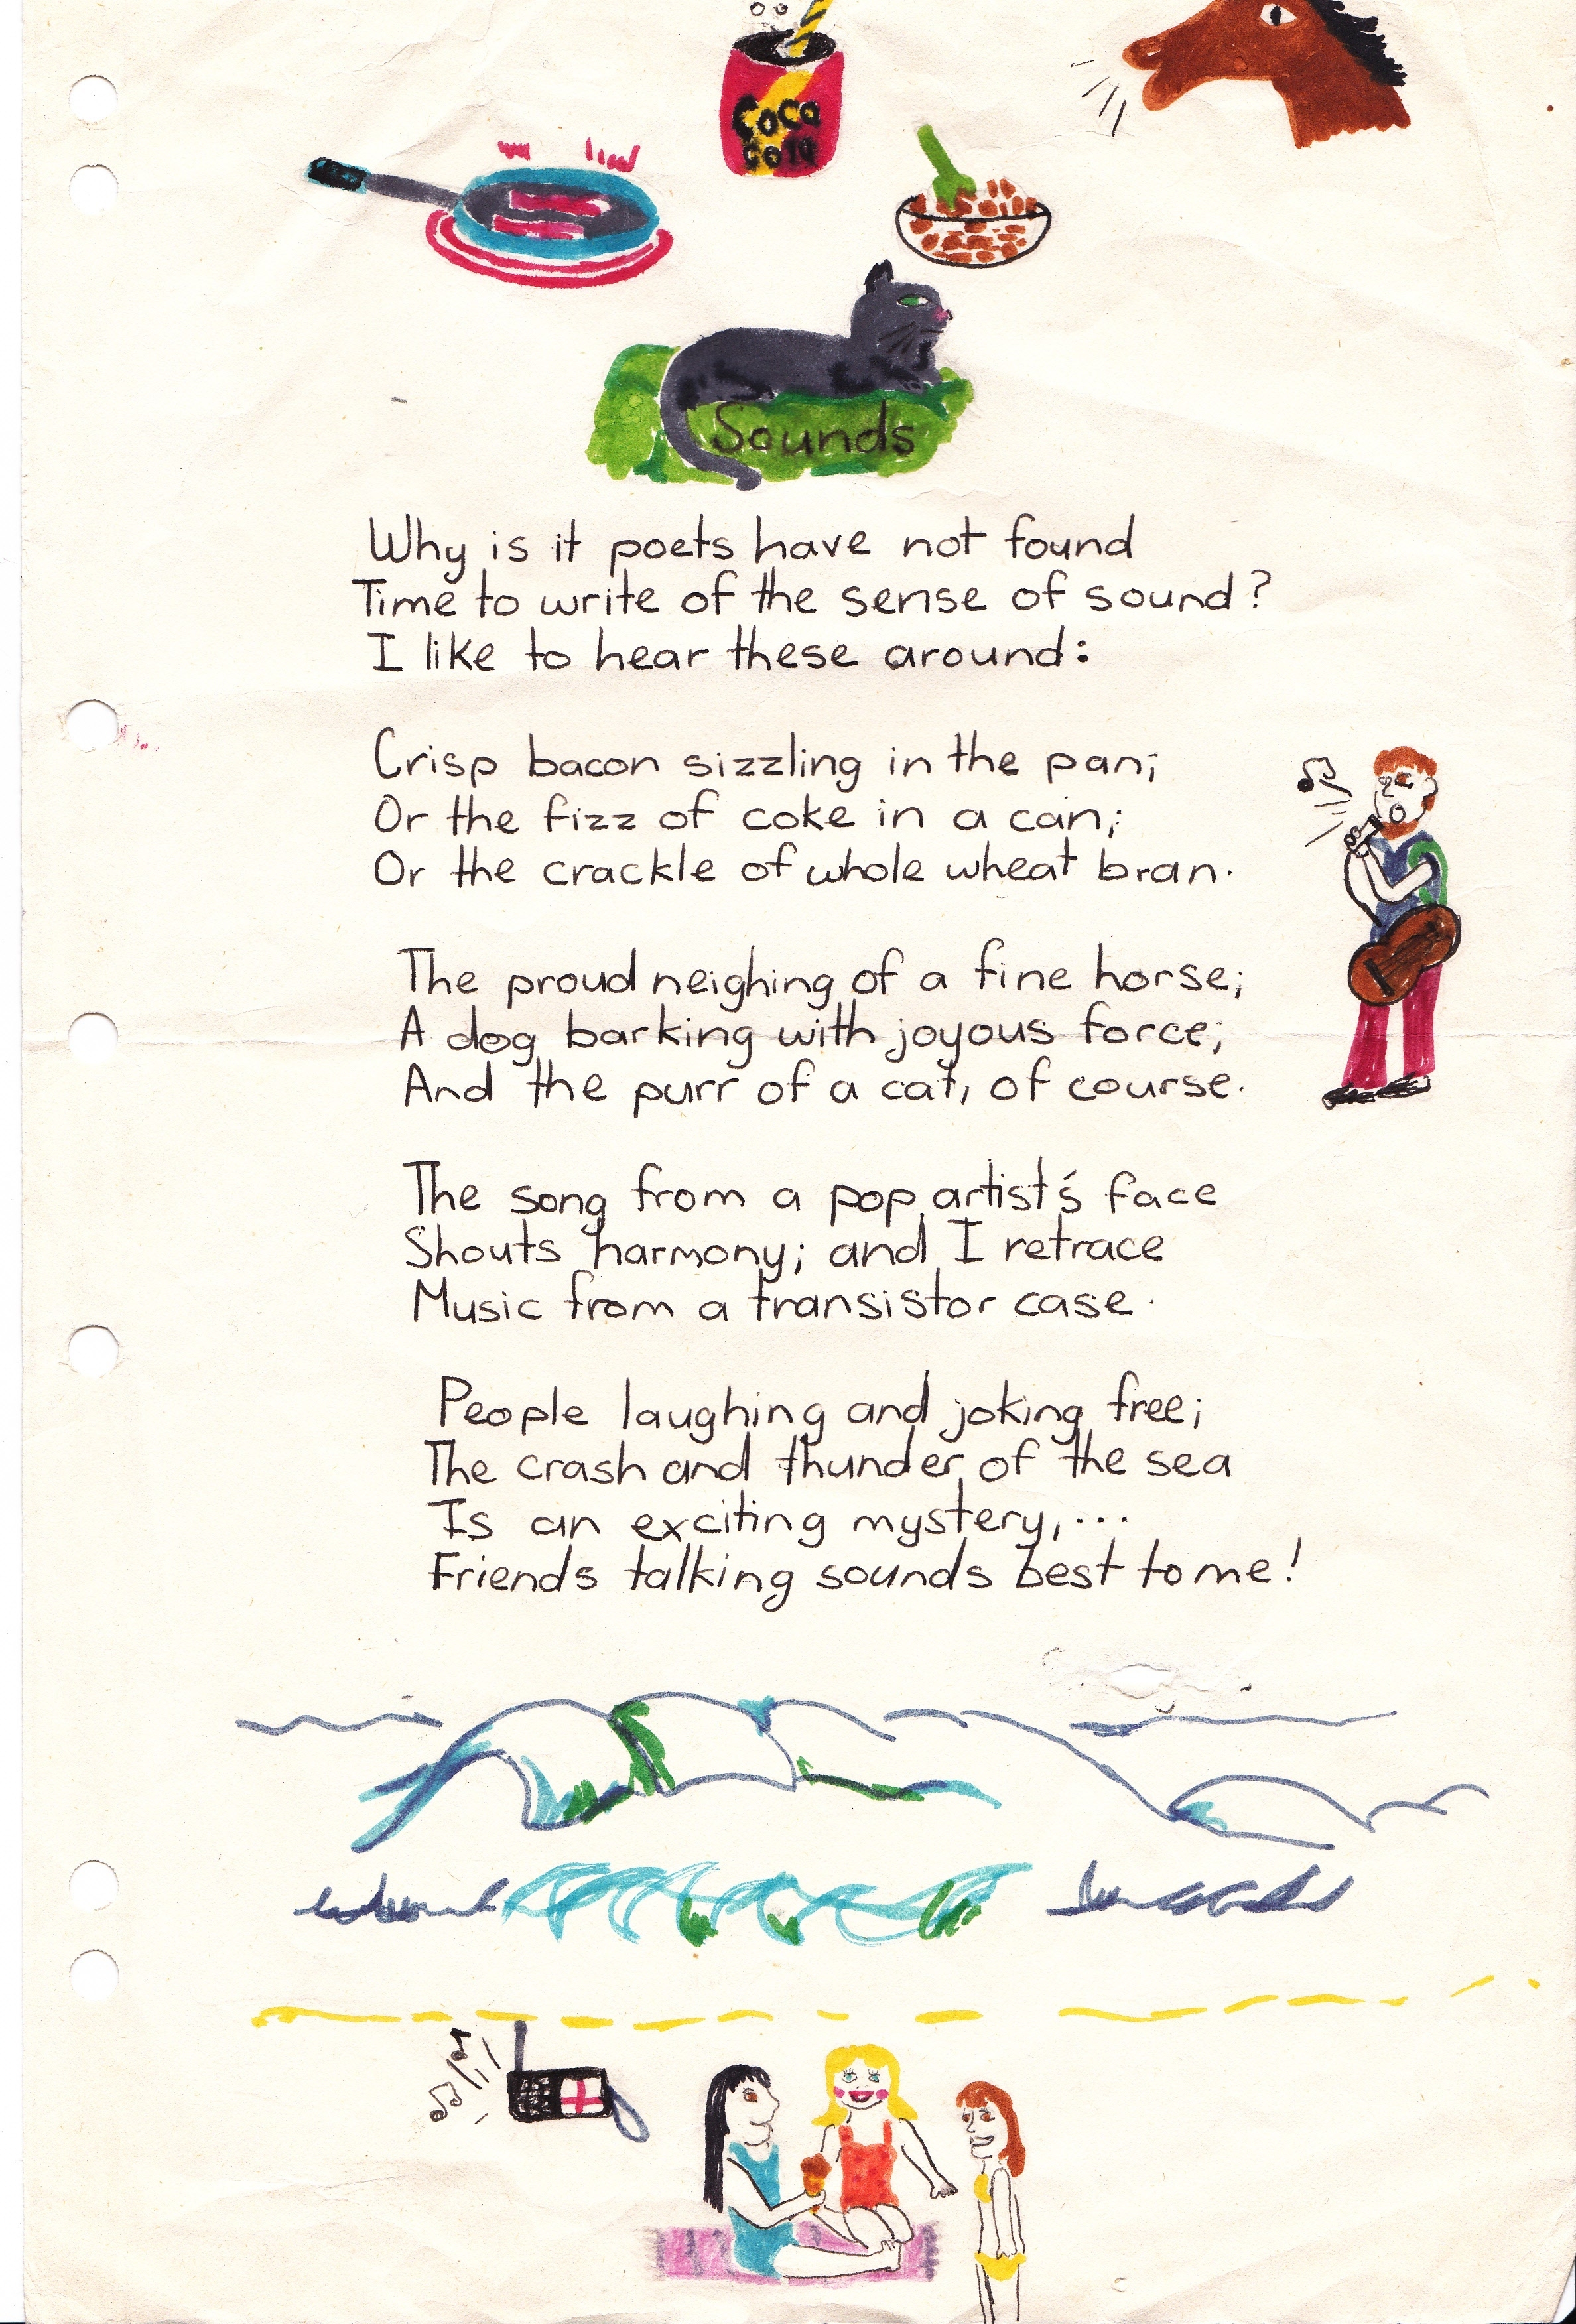 Coco
cola
Sounds
Why is it poets have not found
Time to write of the sense of sound?
I like to hear these around:
Crisp bacon sizzling in the pan;
Or the fizz of coke in a can;
Or the crackle of whole wheat bran.
The proud neighing of a fine horse;
A dog barking with joyous force;
And the purr of a cat, of course.
The song from a pop artist's face
Shouts harmony; and I retrace
Music from a transistor case.
People laughing and joking free;
The crash and thunder of the sea
Is an exciting mystery,...
Friends talking sounds best to me!